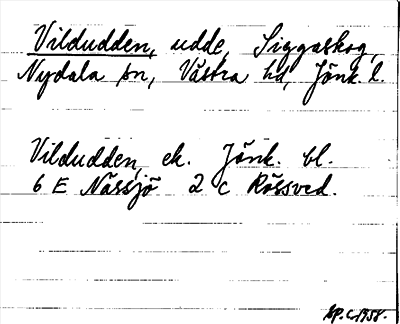 Vildudden, udde, Siggaskog,
Nydala sn, Västra hd, Jönk. l.
Vildudden, ek. Jönk. bl.
6 E Nässjö 2 c Rössved.